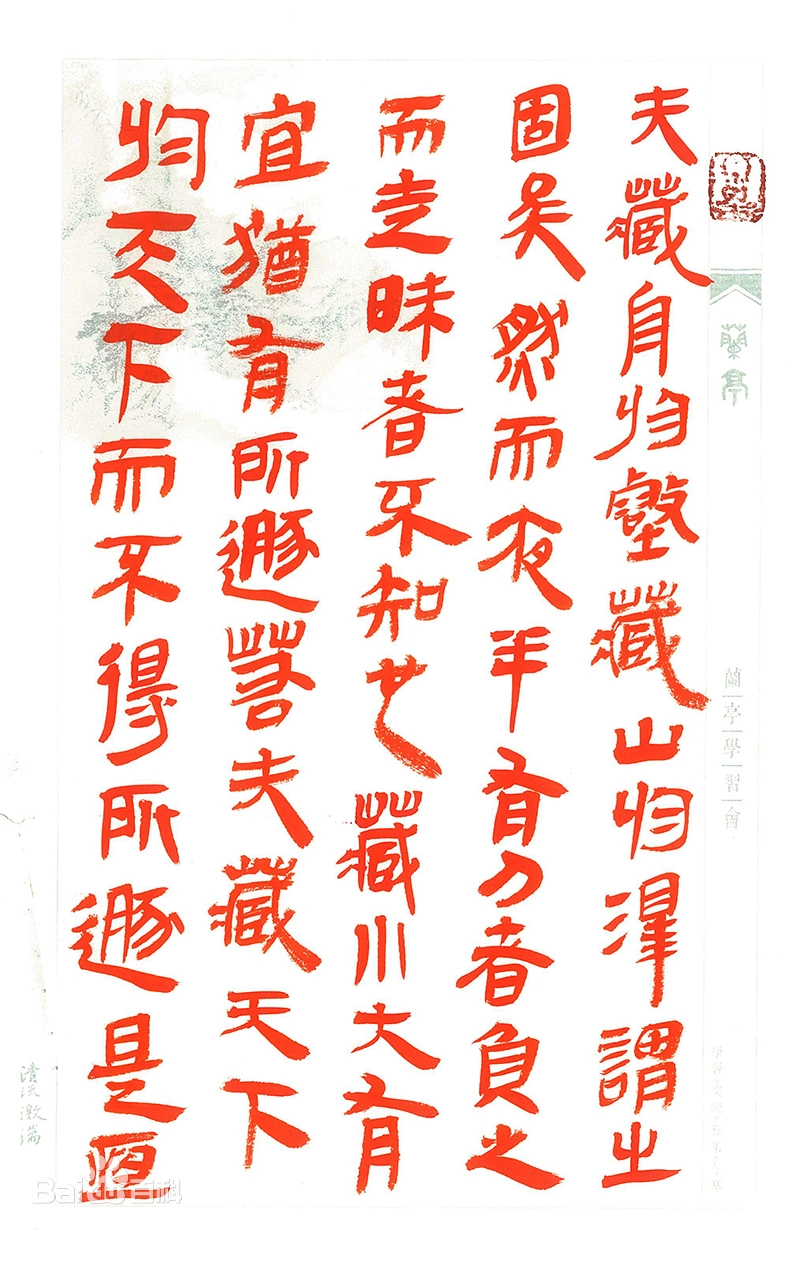 夫藏舟於壑藏山於澤謂之
固矣然而夜半有力者負之
而走昧者不知也藏小大有
宜猶有所遯若夫藏天下
於天下而不得所遯是恆
蘭亭
蘭亭學習會
清流激湍
Bai百科